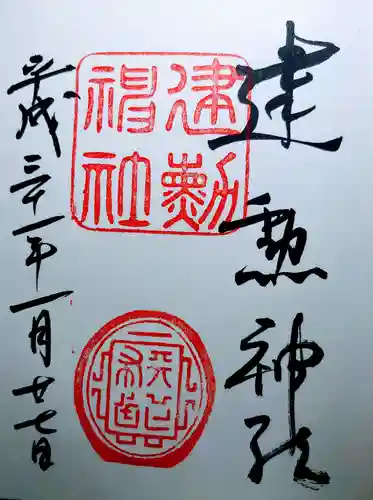 建勲神社
建勲
神社
天下
布武
平成三十一年一月廿七日